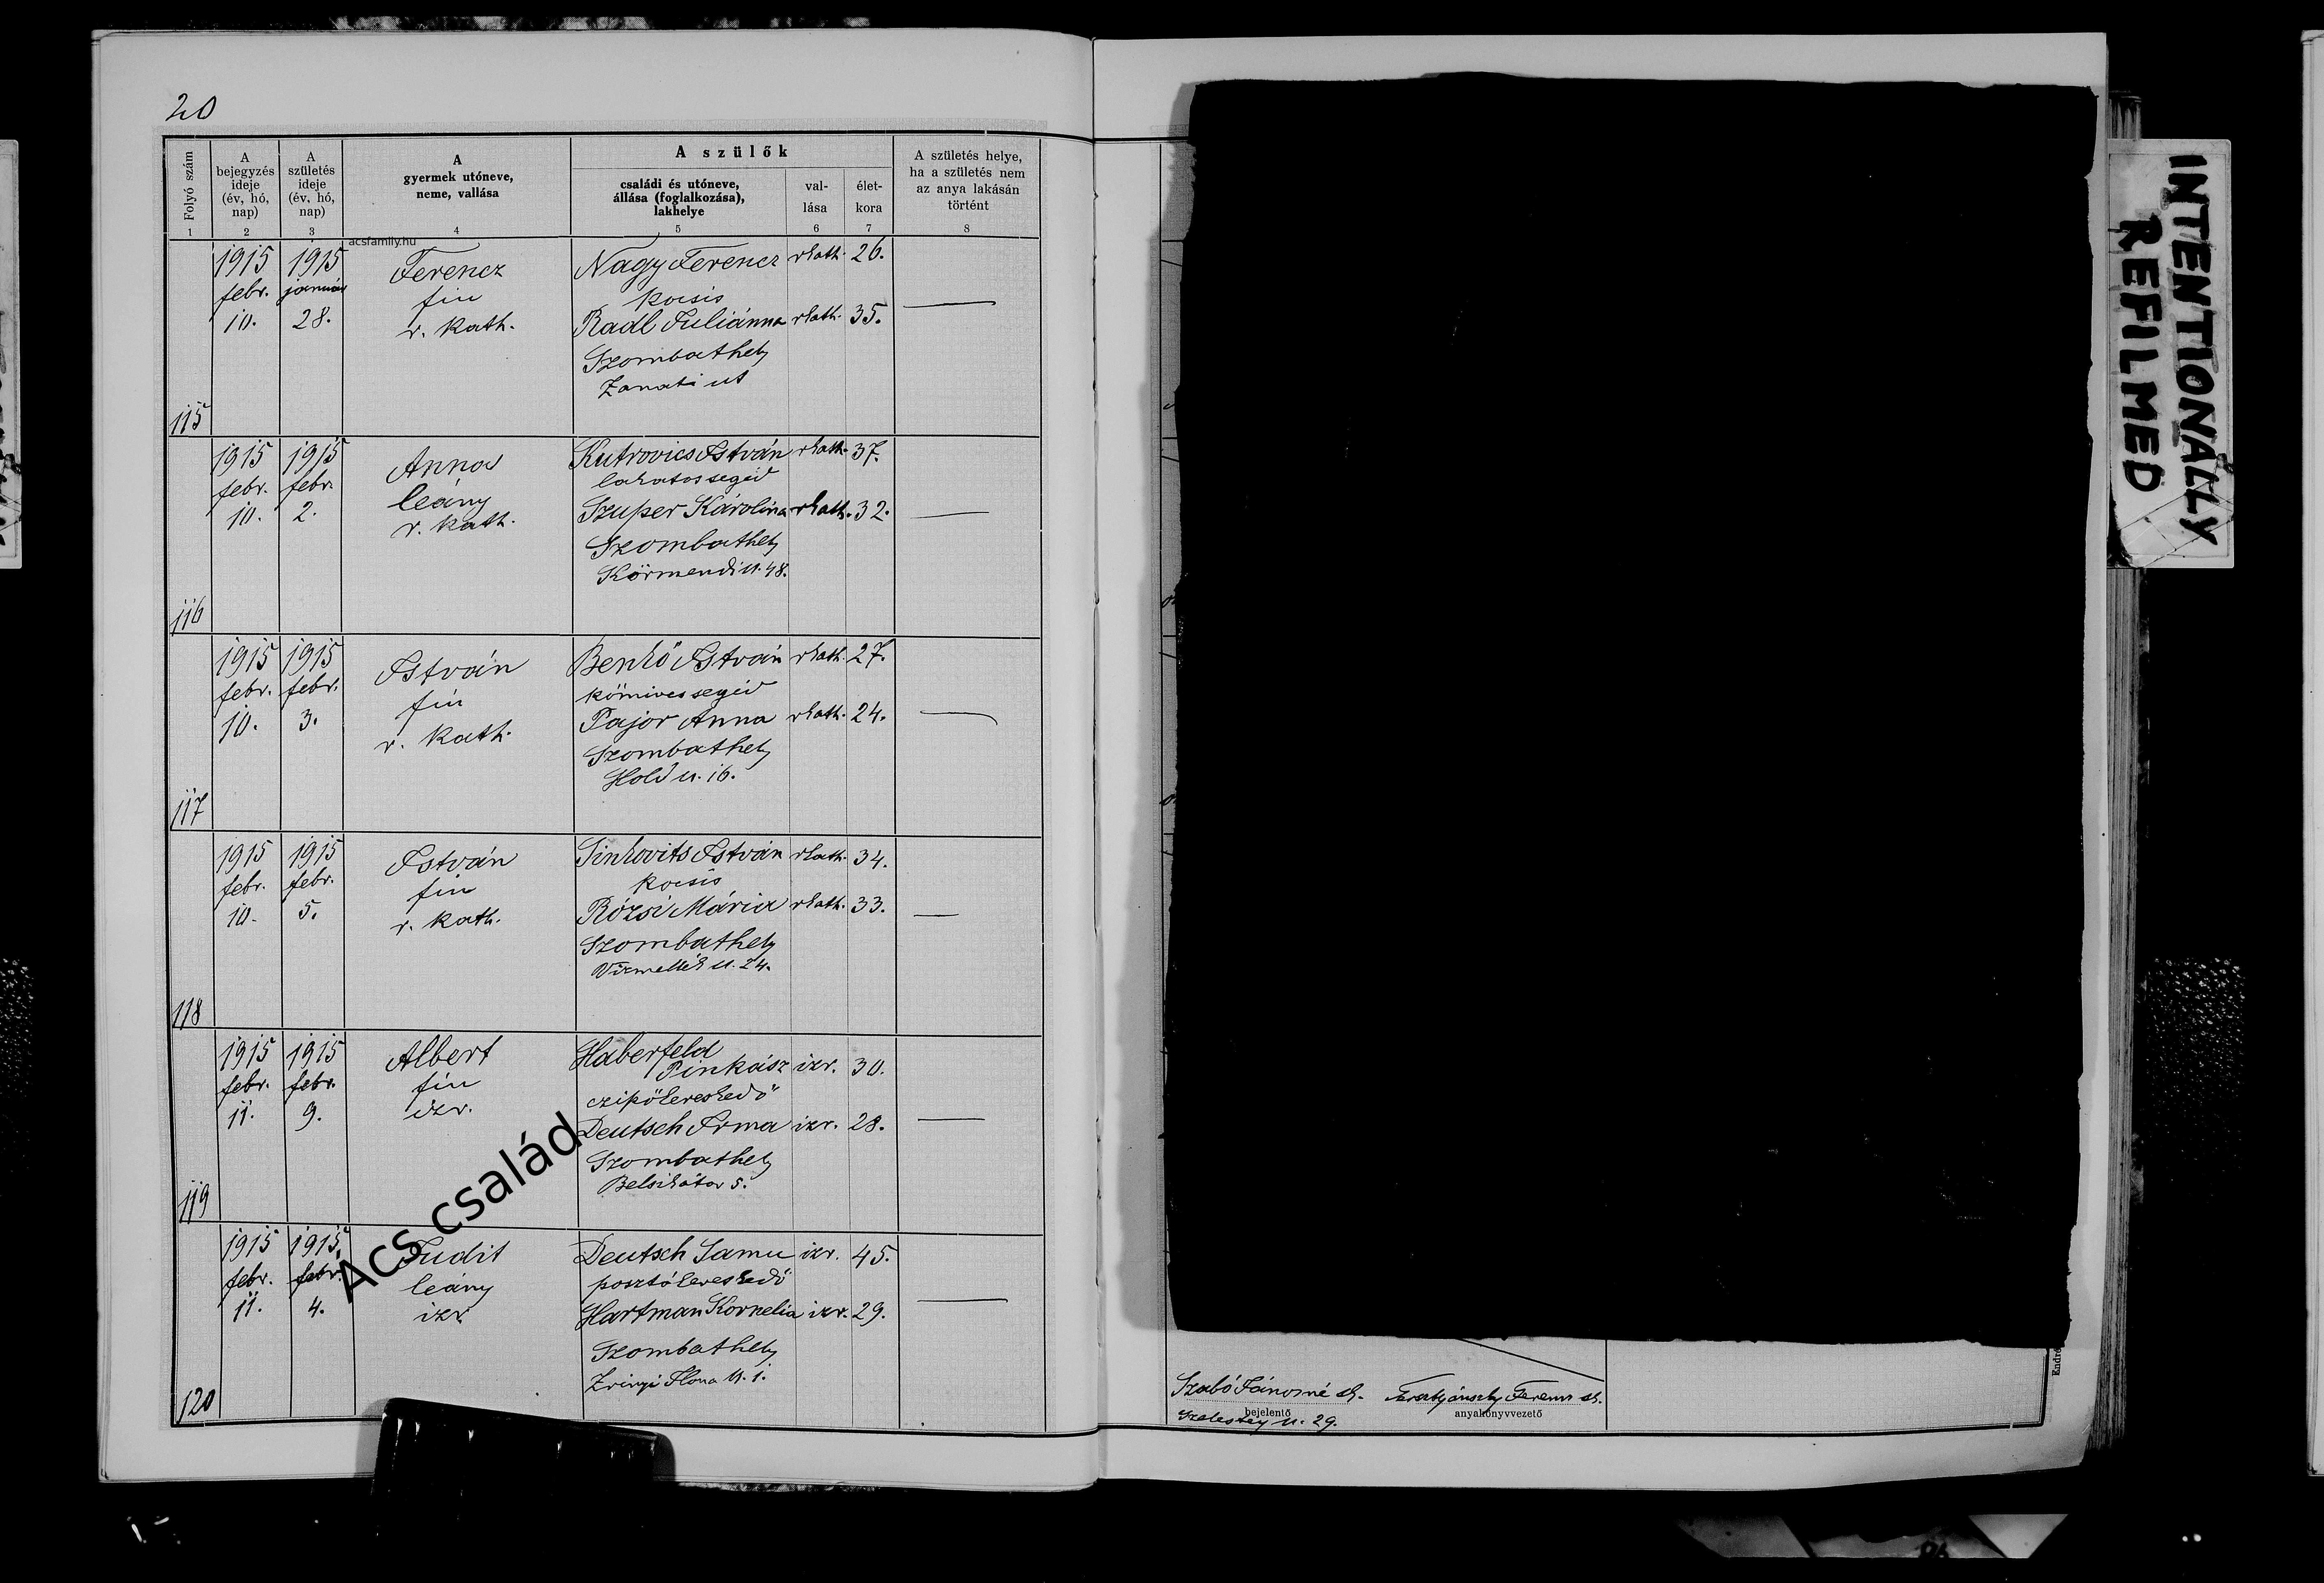 20
Folyó szám
A bejegyzés ideje (év, hó, nap)
A születés ideje (év, hó, nap)
A gyermek utóneve, neme, vallása
A szülők
családi és utóneve, állása (foglalkozása), lakhelye
val-lása
élet-kora
A születés helye, ha a születés nem az anya lakásán történt
1 2 3 4 5 6 7 8
acsfamily.hu
1915 1915 Ferencz Nagy Ferencz rkath. 26.
febr. január fiu kocsis
10. 28. r. kath. Radl Juliánna rkath. 35.
Szombathely
Zanati ut
115
1915 1915 Anna Kutrovics István rkath. 37.
febr. febr. leány lakatossegéd
10. 2. r. kath. Szuper Károlina rkath. 32.
Szombathely
Körmendi u. 48.
116
1915 1915 István Benkő István rkath. 27.
febr. febr. fiu kőmives segéd
10. 3. r. kath. Pajor Anna rkath. 24.
Szombathely
Hold u. 16.
117
1915 1915 István Sinkovits István rkath. 34.
febr. febr. fiu kocsis
10. 5. r. kath. Rózsi Mária rkath. 33.
Szombathely
Vizmellék u. 24.
118
1915 1915 Albert Haberfeld
febr. febr. fiu Pinkász izr. 30.
11. 9. izr. czipőkereskedő
Deutsch Irma izr. 28.
Szombathely
Belsikátor 5.
119
1915 1915 Judit Deutsch Samu izr. 45.
febr. febr. leány posztókereskedő
11. 4. izr. Hartman Kornelia izr. 29.
Szombathely
Zrinyi Ilona u. 1.
120
Acs család
Szabó Jánosné sk.
Ferenc sk.
bejelentő
anyakönyvvezető
u. 29.
Endre
INTENTIONALLY
REFILMED